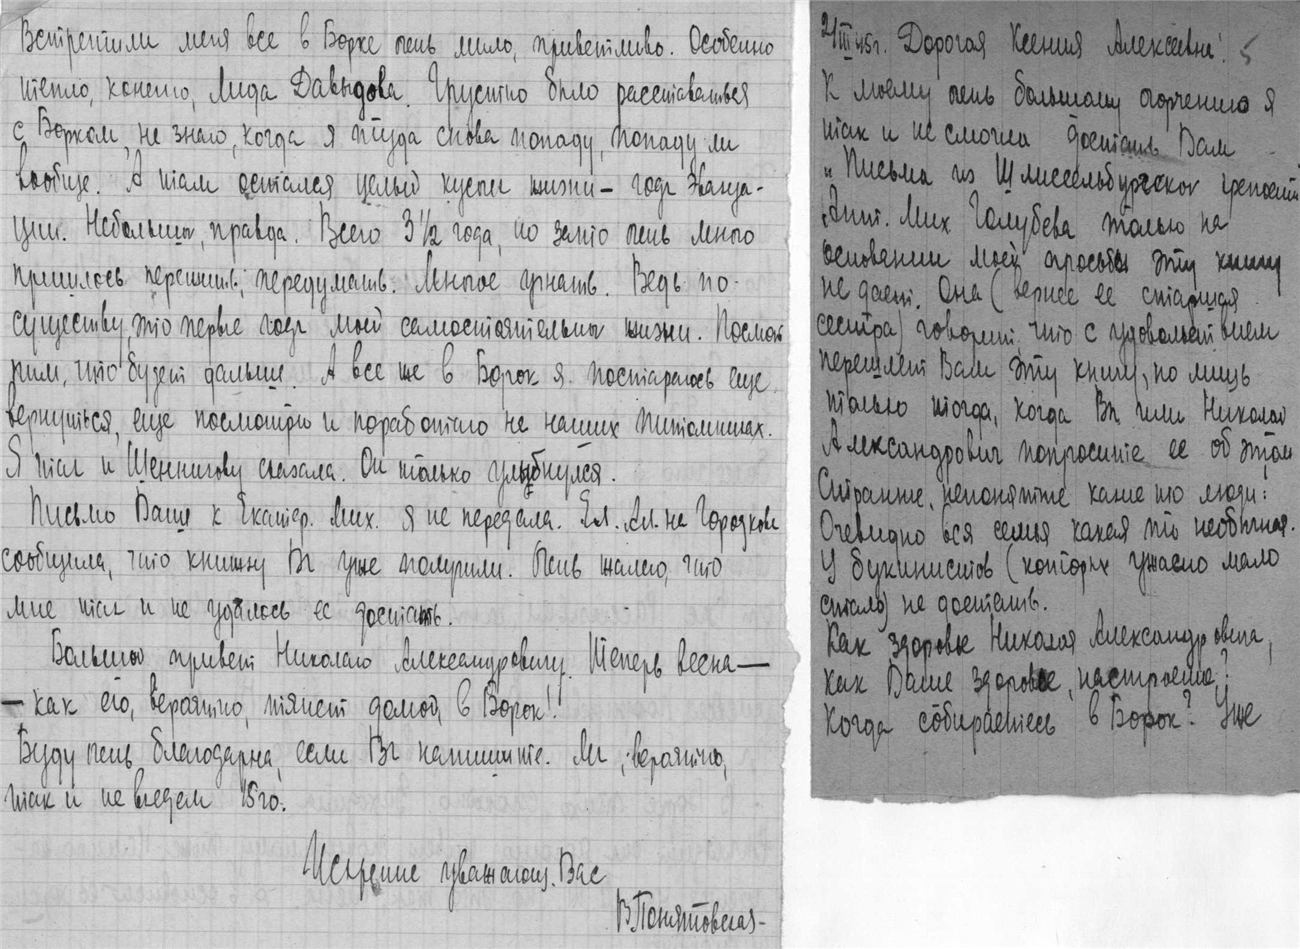 Встретили меня все в Борке очень мило, приветливо. Особенно
тепло, конечно, Лида Давыдова. Грустно было расставаться
с Борком, не знаю, когда я туда снова попаду, попаду ли
вообще. А там остался целый кусок жизни – годы эвакуа-
ции. Небольшой, правда. Всего 3½ года, но зато очень много
пришлось пережить, передумать. Многое узнать. Ведь по-
существу, это первые годы моей самостоятельной жизни. Посмот
рим, что будет дальше. А все же в Борок я постараюсь еще
вернуться, еще посмотрю и поработаю на наших питомниках.
Я так и Шенникову сказала. Он только улыбнулся.
Письмо Ваше к Екатер. Мих. я не передала. Ел. Ал-на Городкова
сообщила, что книжку Вы уже получили. Очень жалею, что
мне так и не удалось ее достать.
Большой привет Николаю Александровичу. Теперь весна —
— как его, вероятно, тянет домой, в Борок!!
Буду очень благодарна, если Вы напишите. Мы, вероятно,
так и не выедем 15го.
Искренне уважающ. Вас
В. Понятовская-
2/III 45г. Дорогая Ксения Алексеевна! 5
К моему очень большому огорчению я
так и не смогла достать Вам
„Письма из Шлиссельбургской крепости
Мих Голубева только на
основании моей просьбы эту книгу
не дает. Она (вернее ее старшая
сестра) говорит что с удовольствием
перешлет Вам эту книгу, но лишь
только тогда, когда Вы или Николай
Александрович попросите ее об этом
Странные, непонятные какие то люди!
Очевидно вся семья какая то необычная.
У букинистов (которых ужасно мало
стало) не достать.
Как здоровье Николая Александровича,
как Ваше здоровье, настроение?
Когда собираетесь в Борок? Уже